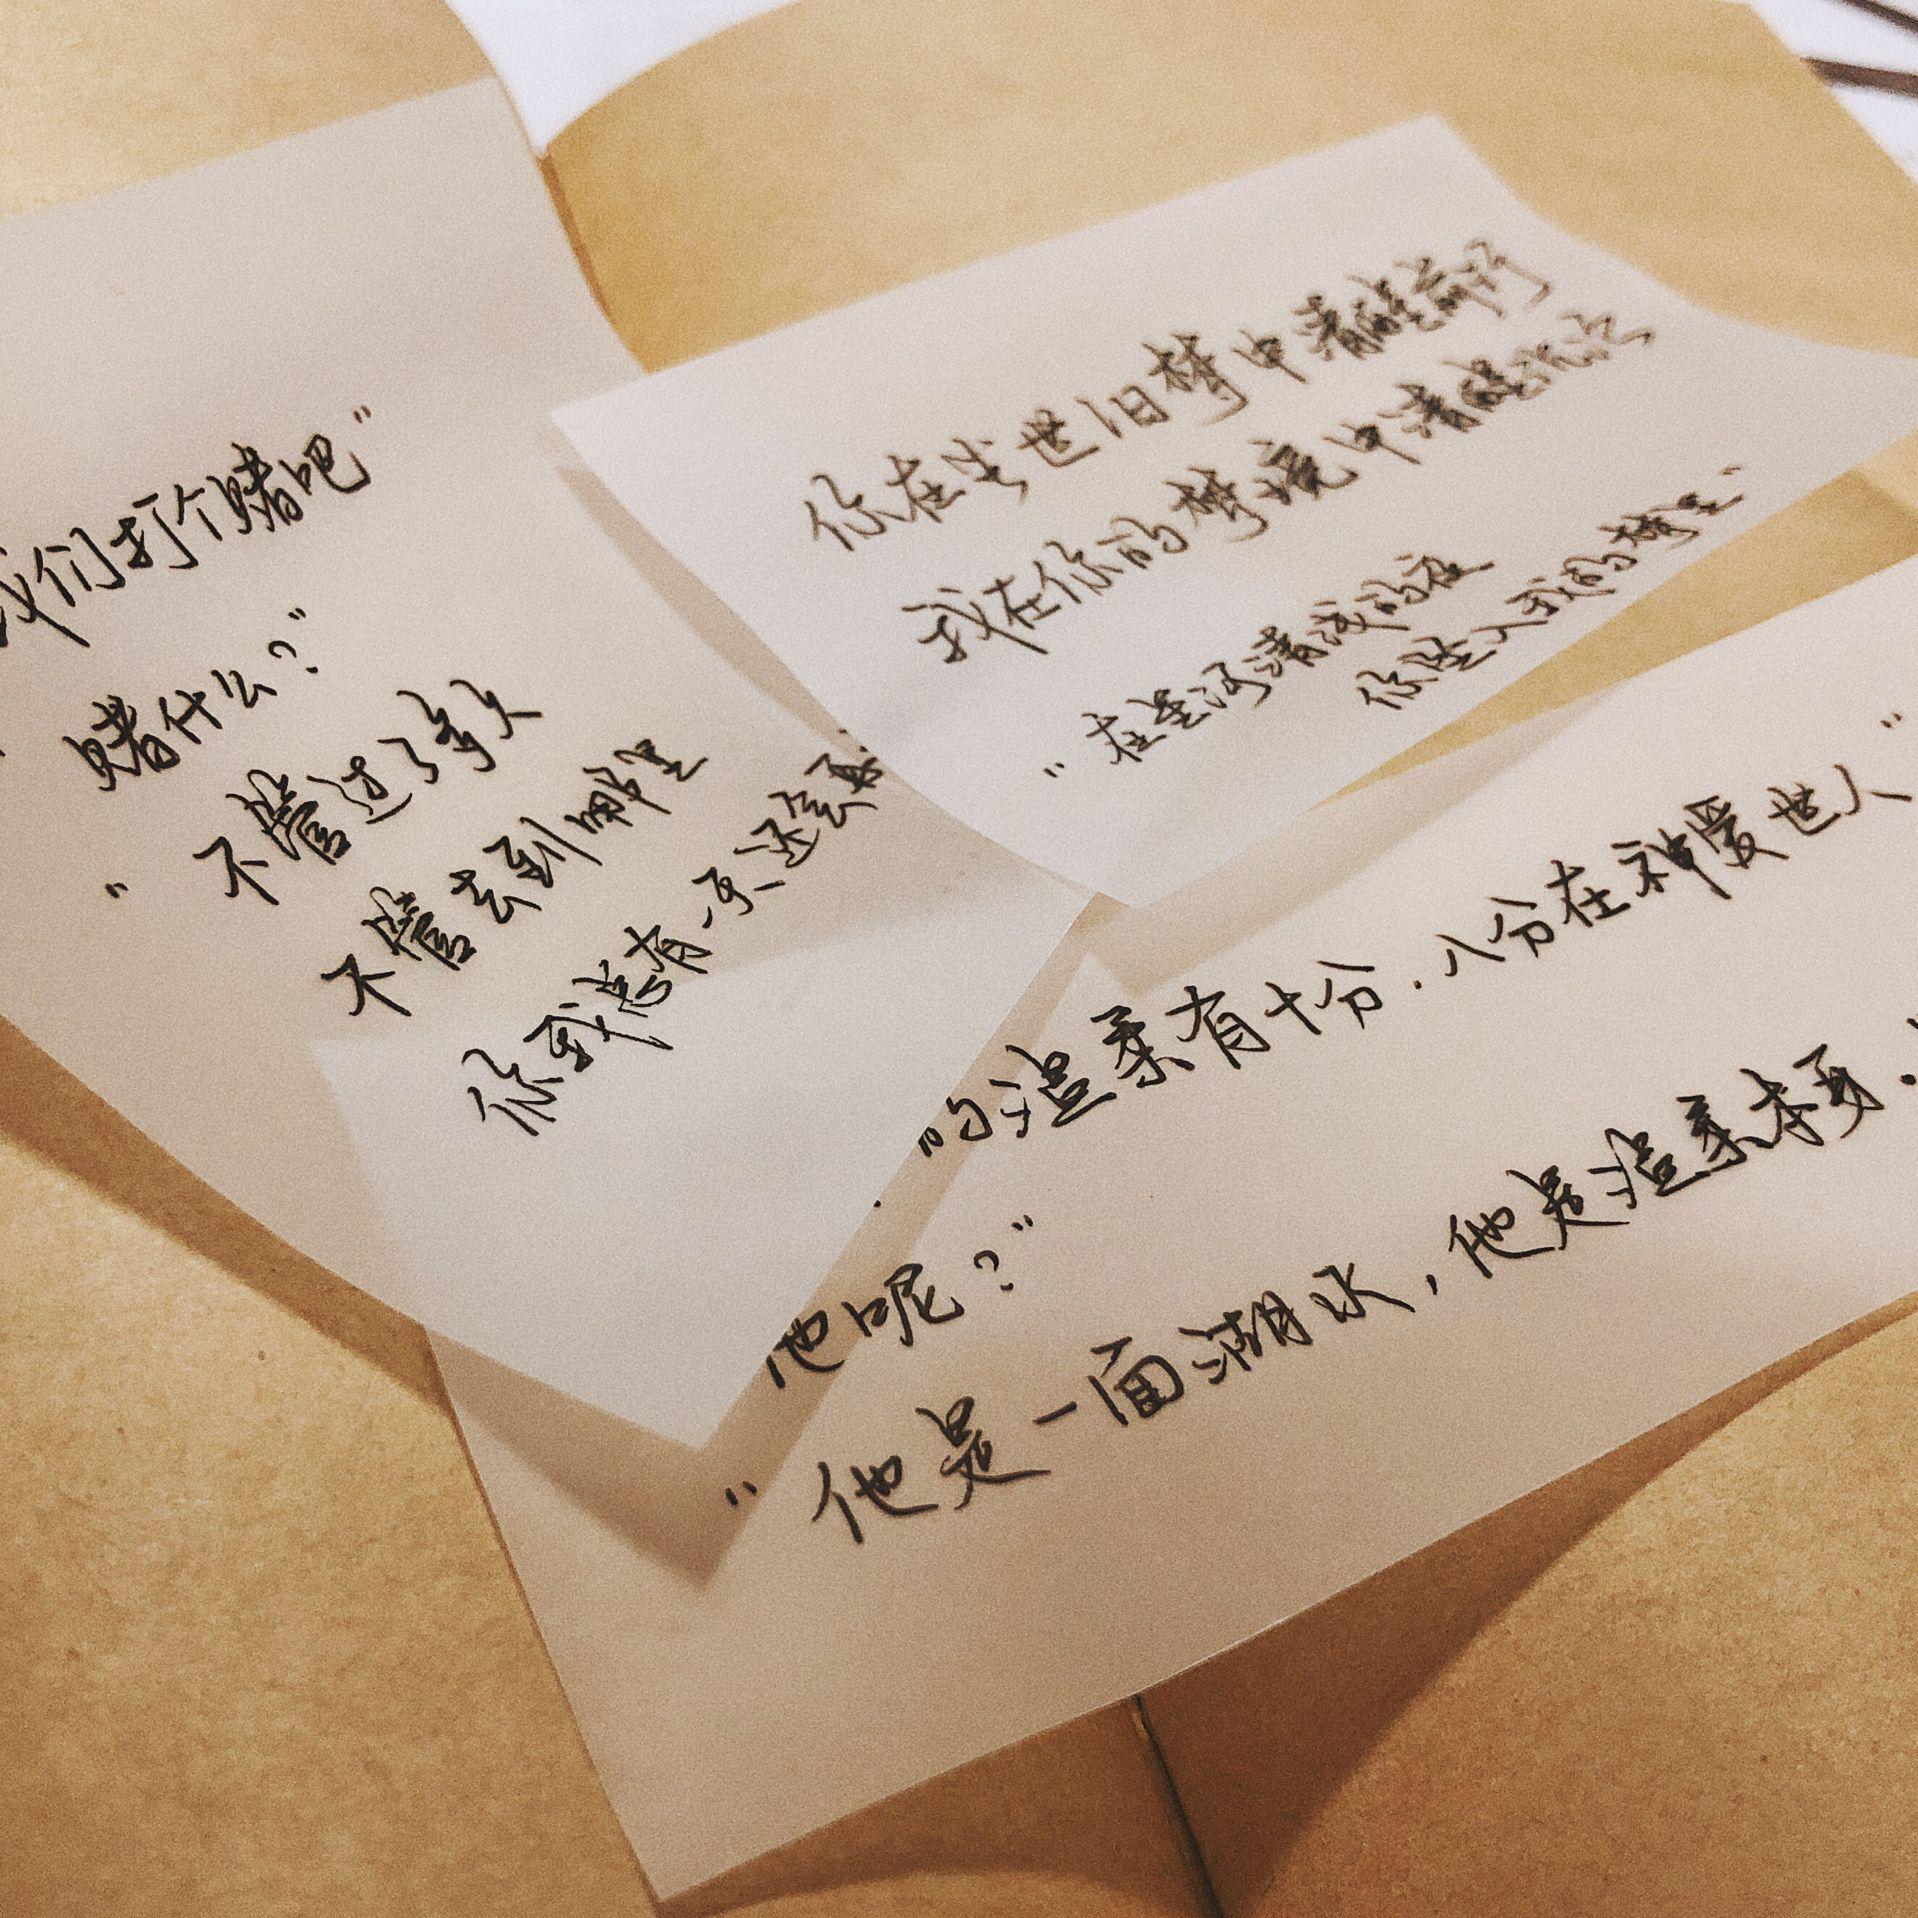 我们打个赌吧"
赌什么？"
"不管过了多久
不管去到哪里
你我总有一天还会再
你在尘世旧梦中清醒前行
我在你的梦境中清醒沉沦
"在星河清浅的夜
你坠入我的梦里"
的温柔有十分，八分在神爱世人"
他呢？"
"他是一面湖水，他是温柔本身，